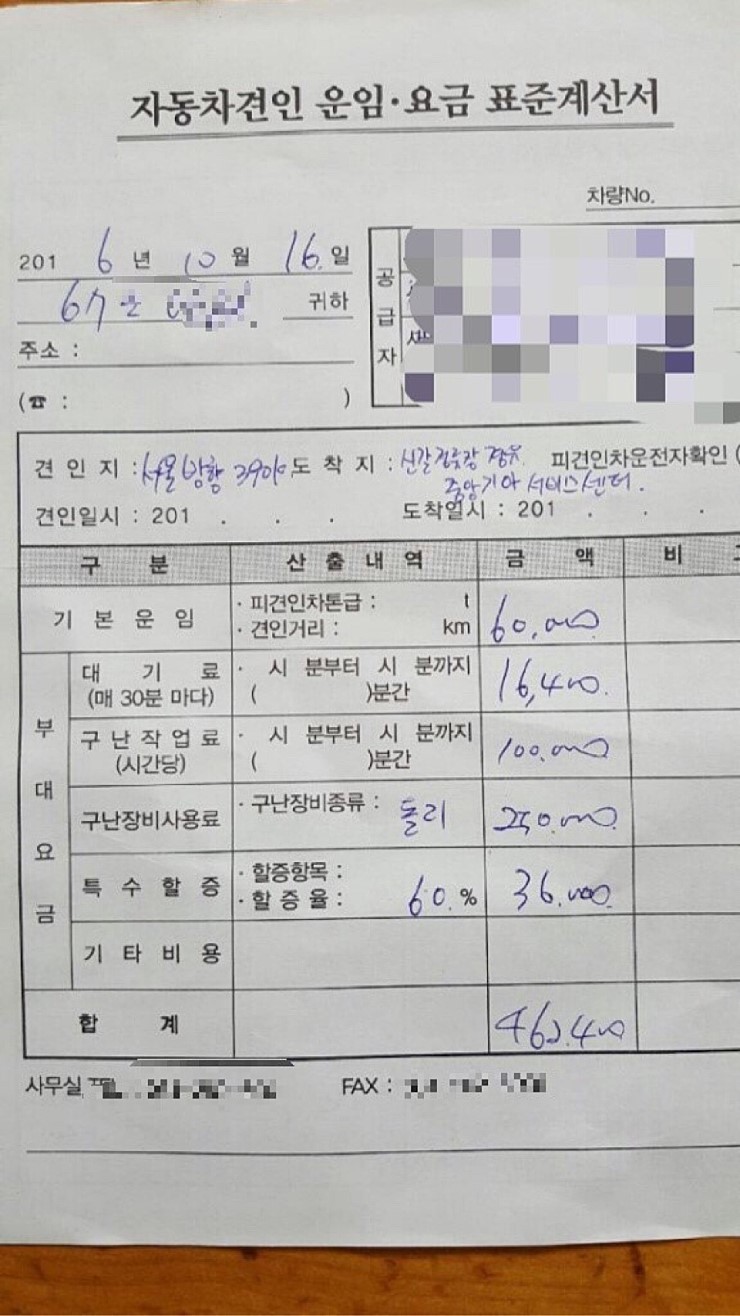 자동차견인 운임·요금 표준계산서
차량No.
2016년 10월 16일
귀하
공급자
주소 :
(☎ : )
견인지 : 서울방향 390k 도착지 : 신갈 경유 피견인차운전자확인 (
중앙기아 서비스센터.
견인일시 : 201 . . . 도착일시 : 201 . .
구 분 산 출 내 역 금 액 비
기 본 운 임 · 피견인차톤급 : t 60,000
· 견인거리 : km
부대요금
대 기 료 · 시 분부터 시 분까지 16,400.
(매 30분 마다) ( )분간
구 난 작 업 료 · 시 분부터 시 분까지 100,000
(시간당) ( )분간
구난장비사용료 · 구난장비종류 : 돌리 250,000.
특 수 할 증 · 할증항목 :
· 할 증 율 : 60. % 36,000.
기 타 비 용
합 계 462,400
사무실
FAX :